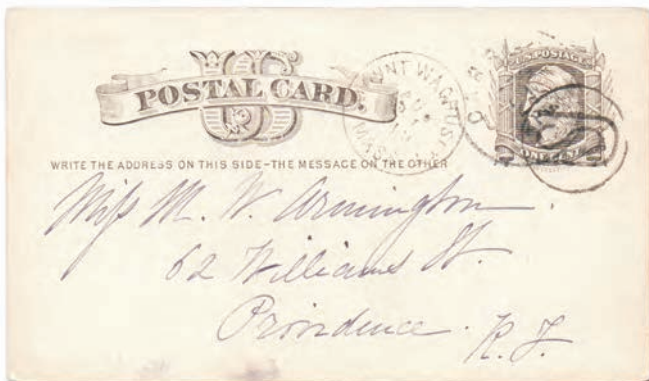 US
POSTAL CARD.
U.S. POSTAGE
ONE CENT
WRITE THE ADDRESS ON THIS SIDE - THE MESSAGE ON THE OTHER
Miss M. W. Armington.
62 Williams St.
Providence.
R.I.